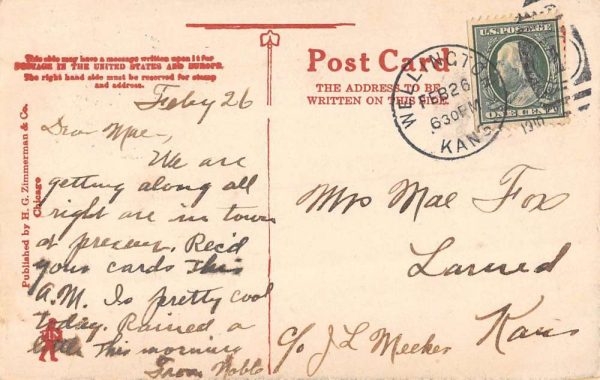 This side may have a message written upon it for
POSTAGE IN THE UNITED STATES AND EUROPE.
The right hand side must be reserved for stamp
and address.
Feby 26
Dear Mae,
We are
getting along all
right are in town
at present. Rec'd
your cards this
A.M. Is pretty cool
today. Rained a
little this morning
From Noble
Published by H. G. Zimmerman & Co.
Chicago
Post Card
THE ADDRESS TO BE
WRITTEN ON THIS SIDE
WELLINGTON
FEB 26
6 30 PM
KANS
1910
U.S. POSTAGE
ONE CENT
Mrs Mae Fox
Larned
Kans
c/o J L Meeker